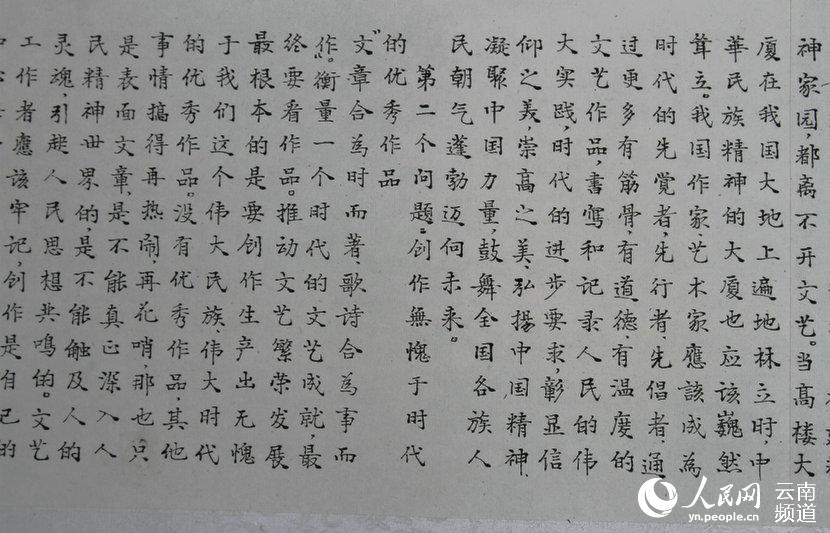 神家园，都离不开文艺。当高楼大
厦在我国大地上遍地林立时，中
華民族精神的大厦也应该巍然
耸立。我国作家艺术家應該成為
时代的先覺者，先行者、先倡者，通
过更多有筋骨，有道德，有温度的
文艺作品，書寫和记录人民的伟
大实践，时代的进步要求，彰显信
仰之美，崇高之美、弘揚中国精神、
凝聚中国力量，鼓舞全国各族人
民朝气蓬勃迈向未来。
第二个问题：创作無愧于时代
的优秀作品
“文章合為时而著、歌诗合為事而
作。”衡量一个时代的文艺成就，最
终要看作品。推动文艺繁荣发展
最根本的是要创作生产出无愧
于我们这个伟大民族、伟大时代
的优秀作品。没有优秀作品，其他
事情搞得再热闹，再花哨，那也只
是表面文章，是不能真正深入人
民精神世界的，是不能触及人的
灵魂，引起人民思想共鸣的。文艺
工作者應该牢记，创作是自己的
人民网 云南频道
yn.people.cn